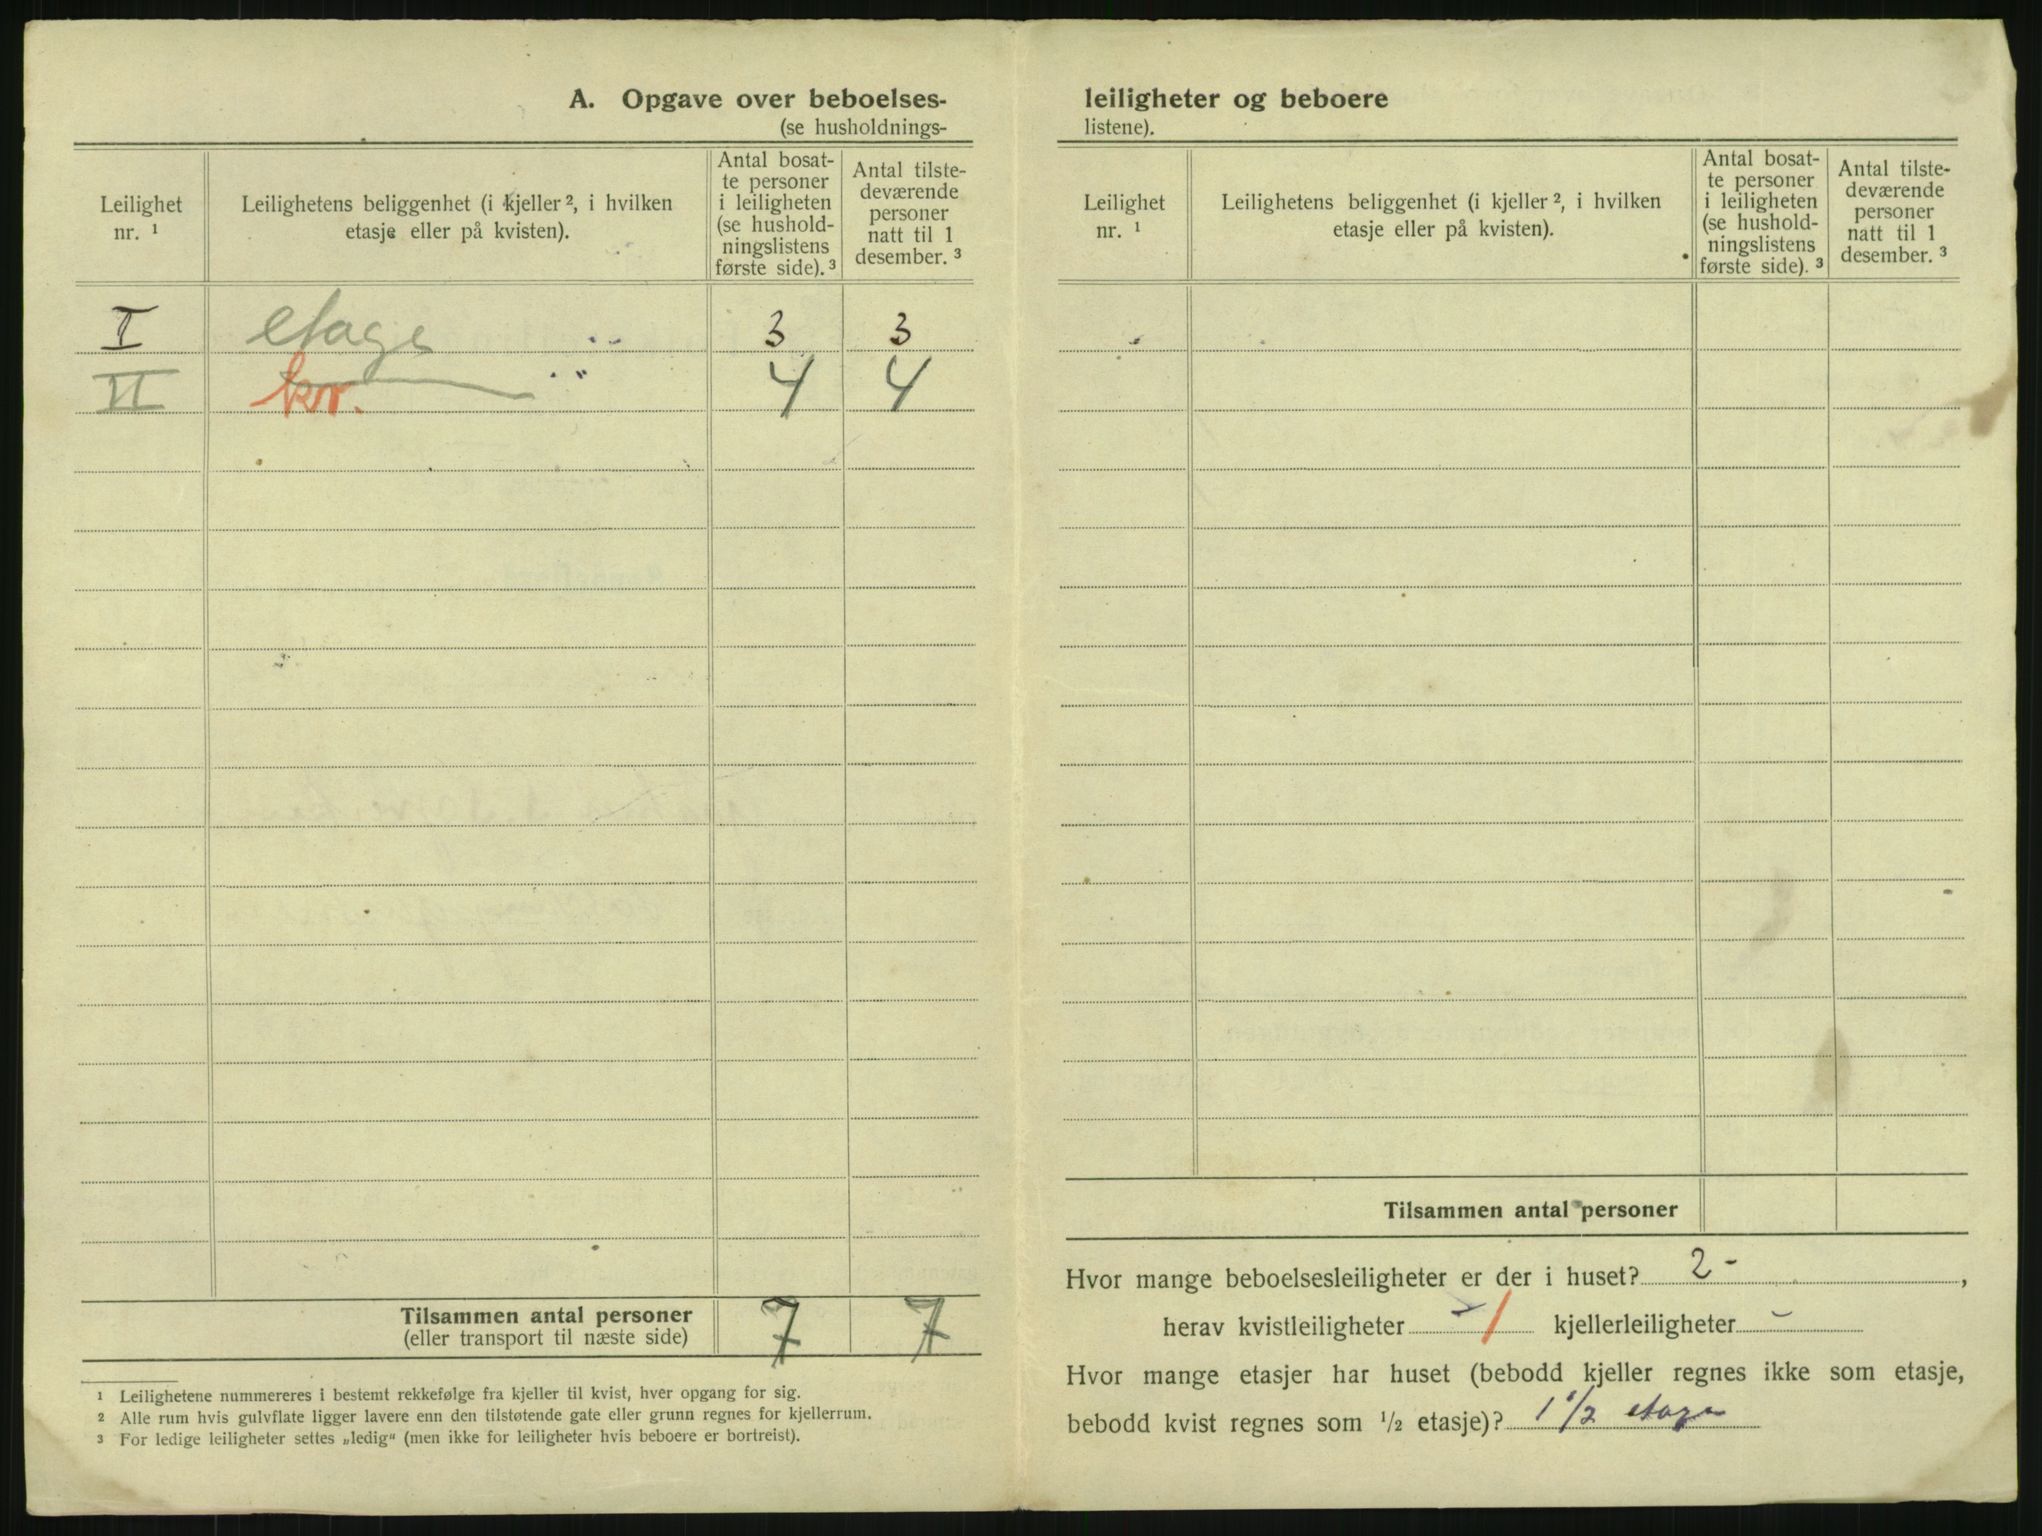 A. Opgave over beboelses-
(se husholdnings-
Leilighet nr. ¹
Leilighetens beliggenhet (i kjeller ², i hvilken etasje eller på kvisten).
Antal bosatte personer i leiligheten (se husholdningslistens første side). ³
Antal tilstedeværende personer natt til 1 desember. ³
I etage " 3 3
II kv. " 4 4
Tilsammen antal personer 7 7
(eller transport til næste side)
¹ Leilighetene nummereres i bestemt rekkefølge fra kjeller til kvist, hver opgang for sig.
² Alle rum hvis gulvflate ligger lavere enn den tilstøtende gate eller grunn regnes for kjellerrum.
³ For ledige leiligheter settes „ledig“ (men ikke for leiligheter hvis beboere er bortreist).
leiligheter og beboere
listene).
Leilighet nr. ¹
Leilighetens beliggenhet (i kjeller ², i hvilken etasje eller på kvisten).
Antal bosatte personer i leiligheten (se husholdningslistens første side). ³
Antal tilstedeværende personer natt til 1 desember. ³
Tilsammen antal personer
Hvor mange beboelsesleiligheter er der i huset? 2 - ,
herav kvistleiligheter 1 kjellerleiligheter -
Hvor mange etasjer har huset (bebodd kjeller regnes ikke som etasje,
bebodd kvist regnes som ½ etasje)? 1 1/2 etage